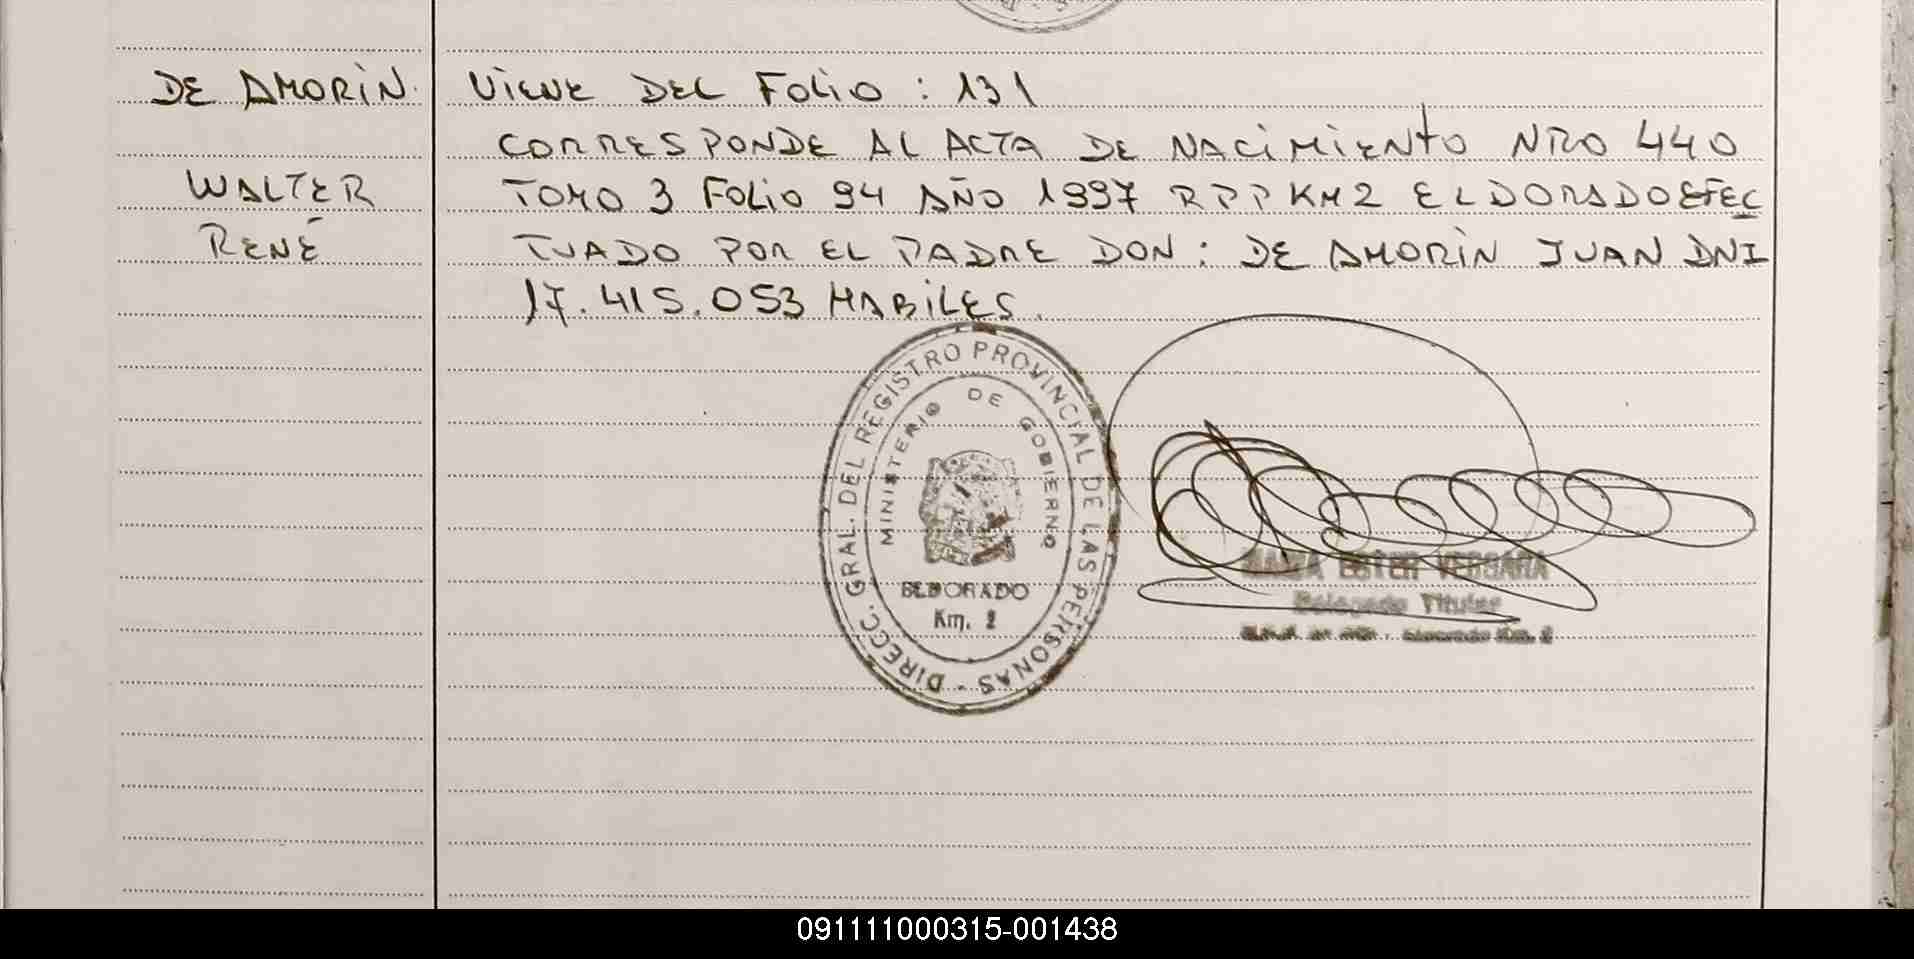 DE AMORIN.
WALTER
RENÉ
VIENE DEL FOLIO : 131
CORRESPONDE AL ACTA DE NACIMIENTO NRO 440
TOMO 3 FOLIO 94 AÑO 1997 RPP KM2 ELDORADO EFEC
TUADO POR EL PADRE DON: DE AMORIN JUAN DNI
17.415.053 HABILES.
DIRECC. GRAL. DEL REGISTRO PROVINCIAL DE LAS PERSONAS -
MINISTERIO DE GOBIERNO
ELDORADO
Km. 2
MARIA ESTER VERGARA
Delegado Titular
Eldorado Km. 2
091111000315-001438